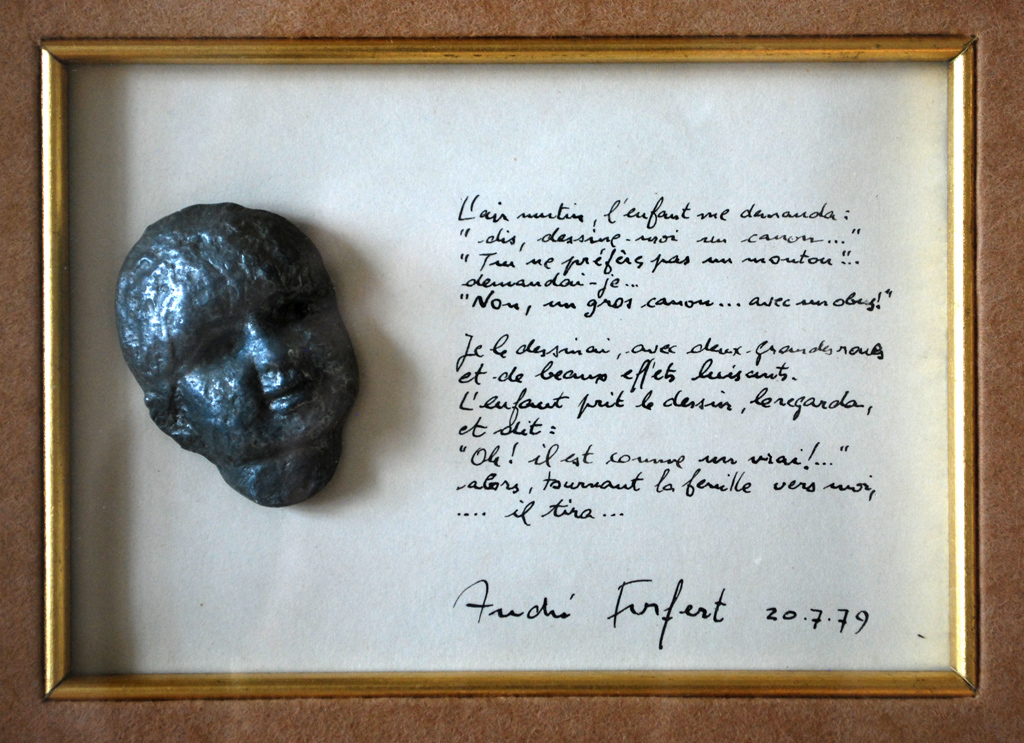 L'air mutin, l'enfant me demanda :
"-dis, dessine-moi un canon..."
"Tu ne préfères pas un mouton"..
demandai-je...
"Non, un gros canon... avec un obus!"
Je le dessinai, avec deux grandes roues
et de beaux effets luisants.
L'enfant prit le dessin, le regarda,
et dit :
"Oh! il est comme un vrai!..."
alors, tournant la feuille vers moi,
.... il tira...
André Furfert 20.7.79